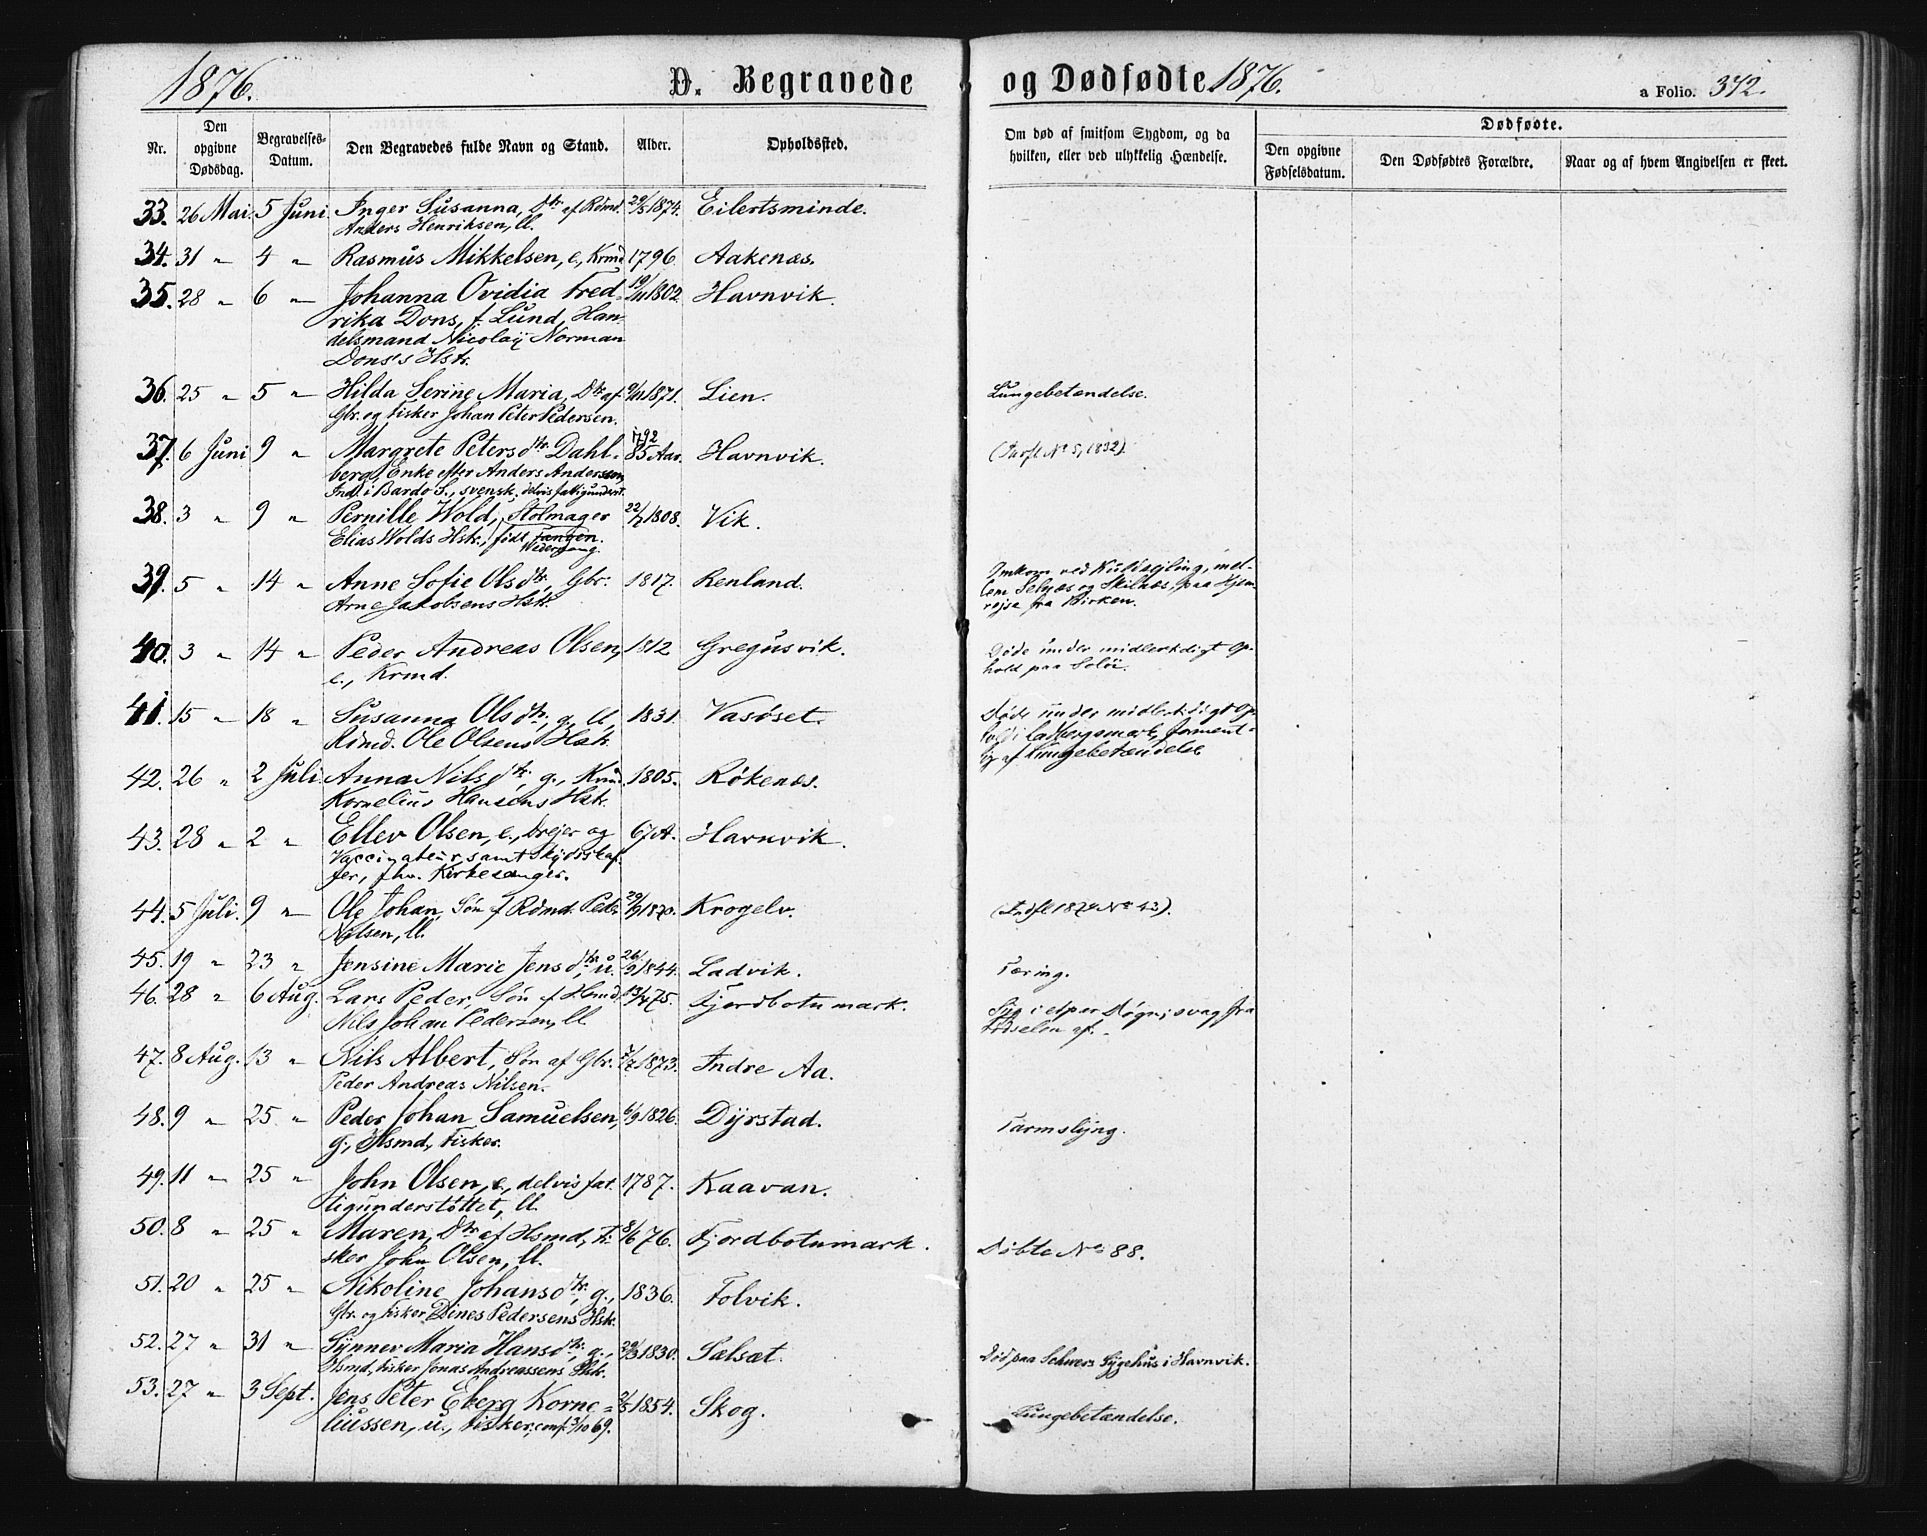 1876.
D. Begravede
og Dødfødte 1876.
a Folio. 342.
Nr.
Den opgivne Dødsdag.
Begravelses-Datum.
Den Begravedes fulde Navn og Stand.
Alder.
Opholdssted.
Om død af smitsom Sygdom, og da hvilken, eller ved ulykkelig Hændelse.
Dødfødte.
Den opgivne Fødselsdatum.
Den Dødfødtes Forældre.
Naar og af hvem Angivelsen er skeet.
33. 26 Mai 5 Juni Inger Susanna, Dtr. af Rdmd. 29/5 1874. Eilertsminde.
Anders Henriksen, ll.
34. 31 " 4 " Rasmus Mikkelsen, e., Krmd 1796. Aakenæs.
35. 28 " 6 " Johanna Ovidia Fred- 19/11 1802. Havnvik.
rika Dons, f. Lund, Han-
delsmand Nicolaij Norman
Dons's Hstr.
36. 25 " 5 " Hilda Serine Maria, Dtr. af 9/11 1871. Lien. Lungebetændelse.
Gbr. og Fisker Johan Peter Pedersen.
37. 6 Juni 9 " Margrete Petersdtr. Dahl- 1792 85 Aar. Havnvik. (Jvrfl. No 5, 1832).
berg, Enke efter Anders Andersson,
Ind. i Bardo S., svensk, delvis fattigunderst.
38. 3 " 9 " Pernille Wold, Stolmager 22/7 1808. Vik.
Elias Wolds Hstr., født Tangen.
Wedervang.
39. 5 " 14 " Anne Sofie Olsdtr., Gbr. 1817. Renland. Omkom ved Kuldsejling, mel-
Arne Jakobsens Hstr.
lem Selnæs og Skilnæs, paa Hjem-
rejse fra Kirken.
40. 3 " 14 " Peder Andreas Olsen, 1812 Gregusvik. Døde under midlertidigt Op-
e., Krmd.
hold paa Soløi.
41. 15 " 18 " Susanna Olsdtr., g., ll, 1831. Vasøset. Døde under midlertidigt Op-
Rdmd. Ole Olsens Hstr.
hold i Ladbergsmark, forment-
lig af Lungebetændelse
42. 26 " 2 Juli Anna Nilsdtr., g., Krmd. 1805. Røkenæs.
Kornelius Hansens Hstr.
43. 28 " 2 " Ellev Olsen, e., Drejer og 67 A. Havnvik.
Vaccinateur, samt Skydsskaf-
fer, fhv. Kirkesanger.
44. 5 Juli. 9 " Ole Johan, Søn af Rdmd. Peder 29/9 1870. Krogelv. (Indfl 1874 No 43).
Nilsen, ll.
45. 19 " 23 " Jensine Marie Jensdtr., u. 26/9 1844. Ladvik. Tæring.
46. 28 " 6 Aug. Lars Peder, Søn af Hsmd. 13/4 75. Fjordbotnmark. Syg i et par Døgn; svag fra
Nils Johan Pedersen, ll.
Fødselen af.
47. 8 Aug. 13 " Nils Albert, Søn af Gbr. 7/7 1873. Indre Aa.
Peder Andreas Nilsen.
48. 9 " 25 " Peder Johan Samuelsen, 6/9 1826. Dyrstad. Tarmslyng.
g., Hsmd., Fisker.
49. 11 " 25 " John Olsen, e., delvis fat- 1787. Kaavan.
tigunderstøttet, ll.
50. 8 " 25 " Maren, Dtr. af Hsmd., Fi- 8/6 76. Fjordbotnmark. Døbte No 88.
sker John Olsen, ll.
51. 20 " 25 " Nikoline Johansdtr., g., 1836. Tolvik.
Gbr. og Fisker Dines Pedersens Hstr.
52. 27 " 31 " Synnev Maria Hansdtr., g., 29/3 1830. Sælsæt. Død paa Schwers Sygehus i Havnvik.
Hsmd., Fisker Jonas Andreassens Hstr.
53. 27 " 3 Sept. Jens Peter Eberg Korne- 2/5 1854. Skog. Lungebetændelse.
liussen, u., Fisker, conf. 3/10 69.